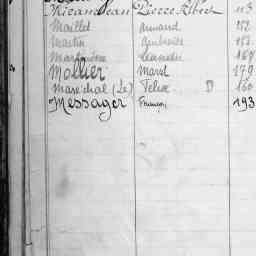 Micand Jean Pierre Albert 113
Maillet Armand 152
Martin Ambroise 153
Léandre 167
Mollier Marst 179
Maréchal (Le) Félix D 160
Messager François 193